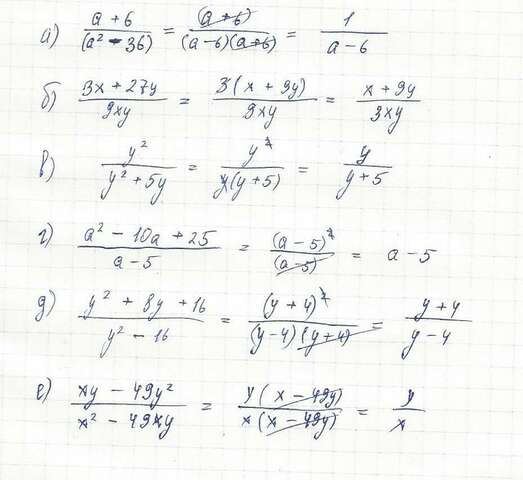 а) (a + 6)/(a² - 36) = (a + 6)/((a - 6)(a + 6)) = 1/(a - 6)
б) (3x + 27y)/(9xy) = 3(x + 9y)/(9xy) = (x + 9y)/(3xy)
в) y²/(y² + 5y) = y²/(y(y + 5)) = y/(y + 5)
г) (a² - 10a + 25)/(a - 5) = (a - 5)²/(a - 5) = a - 5
д) (y² + 8y + 16)/(y² - 16) = (y + 4)²/((y - 4)(y + 4)) = (y + 4)/(y - 4)
е) (xy - 49y²)/(x² - 49xy) = y(x - 49y)/(x(x - 49y)) = y/x